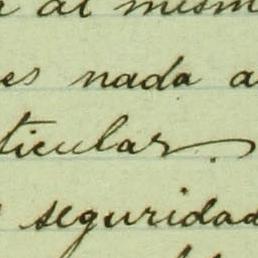 a al mism
es nada a
ticular.
seguridad